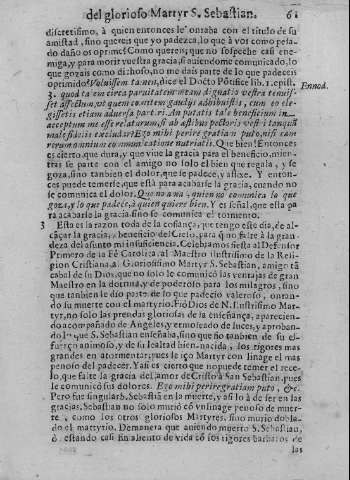 del glorioso Martyr S. Sebastian. 61
discretissimo, à quien entonces le honraba con el titulo de su
amistad, sino quereis que yo padezca, lo que à vos como pesa-
do daño os oprime? Como quereis, que no sospeche casi ene-
miga, y para morir vuestra gracia, si auiendome comunicado, lo
que gozais como dichoso, no me dais parte de lo que padeceis
oprimido? dice el Docto Põtifice lib. 1. epist.
Ennod.
3. quod ta en circa paruitatem meam dignatio vestra tenuis-
set affectum, vt quem comitem gaudijs adhibuistis, cum eo ele-
gissetis etiam aduersa partiri. An putatis tale beneficium in
acceptum me esse relaturum, si ab astibus pectoris vestri tanquã
male fidelis excludar? Ego mihi perire gratiam puto, nisi cum
rerum omnium communicatione nutriatis. Que bien! Entonces
es cierto que dura, y que viue la gracia para el beneficio, mien-
tras se parte con el amigo no solo el bien que regala, y se
goza, sino tambien el dolor, que se padece, y aflixe. Y enton-
ces puede temerse, que està para acabarse la gracia, cuando no
se comunica el dolor. Que no ama, quien no comunica lo que
goza, y lo que padece, à quien quiere bien. Y es señal, que esta pa
ra acabarse la gracia, sino se comunica el tormento.
3 Esta es la razon toda de la cofiança, que tengo este dia, de al-
cãçar la gracia, y beneficio del Cielo, para q no falte à la gran-
deza del asunto mi insuficiencia. Celebramos fiesta al Defensor
Primero de la Fè Catolica, al Maestro Ilustrissimo de la Reli-
gion Cristiana, al Gloriosissimo Martyr S. Sebastian, amigo tã
cabal de su Dios, que no solo le comunicò las ventajas de gran
Maestro en la dotrina, y de poderoso para los milagros, sino
que tanbien le diò parte de lo que padeciò valeroso, onran-
do su muerte con el martyrio. Fiò Dios de N. Ilustrissimo Mar-
tyr, no solo las prendas gloriosas de la enseñança, apareciendo
acompañado de Angeles, y ermoseado de luces, y aproban-
do lo que S. Sebastian enseñaua, sino que fiò tanbien de su es-
fuerço animoso, y de su lealtad bien nacida, los rigores mas
grandes en atormentar; pues le iço Martyr con linage el mas
penoso del padecer. Y asi es cierto que no puede temer el rece-
lo, que falte la gracia del amor de Cristo à San Sebastian, pues
le comunicò sus dolores. Ego mihi perire gratiam puto, &c.
Pero fue singular S. Sebastiã en la muerte, y asi lo à de ser en las
gracias. Sebastian no solo muriò cõ vn linage penoso de muer-
te, como los otros gloriosos Martyres, sino muriò dobla-
do el martyrio. De manera que auiendo muerto S. Sebastian,
ò estando casi sin aliento de vida cõ los rigores barbaros de
las